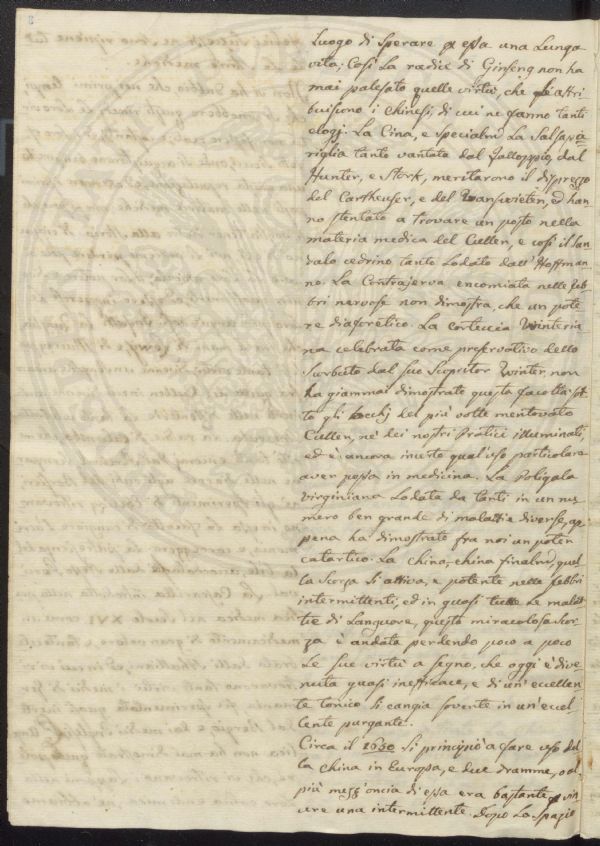 Luogo di sperare p essa una Lunga
vita; Così La radice di Ginseng non ha
mai palesato quelle virtù, che gli attri
buiscono i Chinesi, di cui ne fanno tanti
elogj. La Cina, e specialm La Salsapa
riglia tanto vantata dal Falloppio, dal
Hunter, e Stork, meritarono il disprezzo
del Cartheuser, e del Wanswieten, ed han
no stentato a trovare un posto nella
materia medica del Cullen, e così il San
dalo cedrino tanto Lodato dall' Hoffman
no. La Contrajerva encomiata nelle feb
bri nervose non dimostra, che un pote
re diaforetico. La corteccia Winteria
na celebrata come preservativo dello
Scorbuto dal suo Scopritor Winter, non
ha giammai dimostrato questa facoltà sot
to gli occhj del più volte mentovato
Cullen, nè dei nostri Pratici illuminati,
ed è ancora incerto qual'uso particolare
aver possa in medicina. La Poligala
virginiana Lodata da tanti in un nu
mero ben grande di malattie diverse, ap
pena ha dimostrato fra noi un poter
catartico. La china, china finalm, quel
la scorza sì attiva, e potente nelle febbri
intermittenti, ed in quasi tutte Le malat
tie di Languore, questa miracolosa scor
za è andata perdendo poco a poco
Le sue virtù a segno, che oggi è dive
nuta quasi inefficace, e di un' eccellen
te tonico si cangia sovente in un' eccel
lente purgante.
Circa il 1600 si principiò a fare uso del
la china in Europa, e due dramme, o al
più mezz'oncia di essa era bastante p vin
cere una intermittente. Dopo Lo spazio